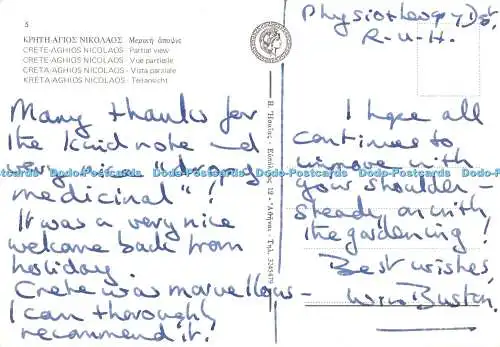 5
ΚΡΗΤΗ-ΑΓΙΟΣ ΝΙΚΟΛΑΟΣ Μερική άποψις
CRETE-AGHIOS NICOLAOS - Partial view
CRETE-AGHIOS NICOLAOS - Vue partielle
CRETA-AGHIOS NICOLAOS - Vista parziale
KRETA-AGHIOS NICOLAOS - Teilansicht
Many thanks for
the kind note and
very nice "drops
medicinal"!
It was a very nice
welcome back from
holiday.
Crete was marvellous -
I can thoroughly
recommend it!
Physiotherapy Dpt,
R-U-H.
I hope all
continues to
improve with
your shoulder -
steady on with
the gardening!
Best wishes,
Win Buston.
12 - Ἀθῆναι - Τηλ. 3245479
Dodo-Postcards Dodo-Postcards Dodo-Postcards Dodo-Postcards Dodo-Postcards